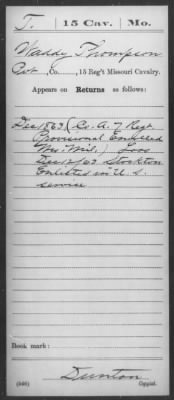 T. 15 Cav. Mo.
Waddy Thompson
Cpt., Co. , 15 Reg't Missouri Cavalry.
Appears on Returns as follows:
Dec 1863 (Co. A. 7 Regt
Provisional Enrolled
Mo. Mil.) Loss
Dec 12/63 Stockton
Enlisted in U.S.
service
Book mark:
(546) Dunton
Copyist.